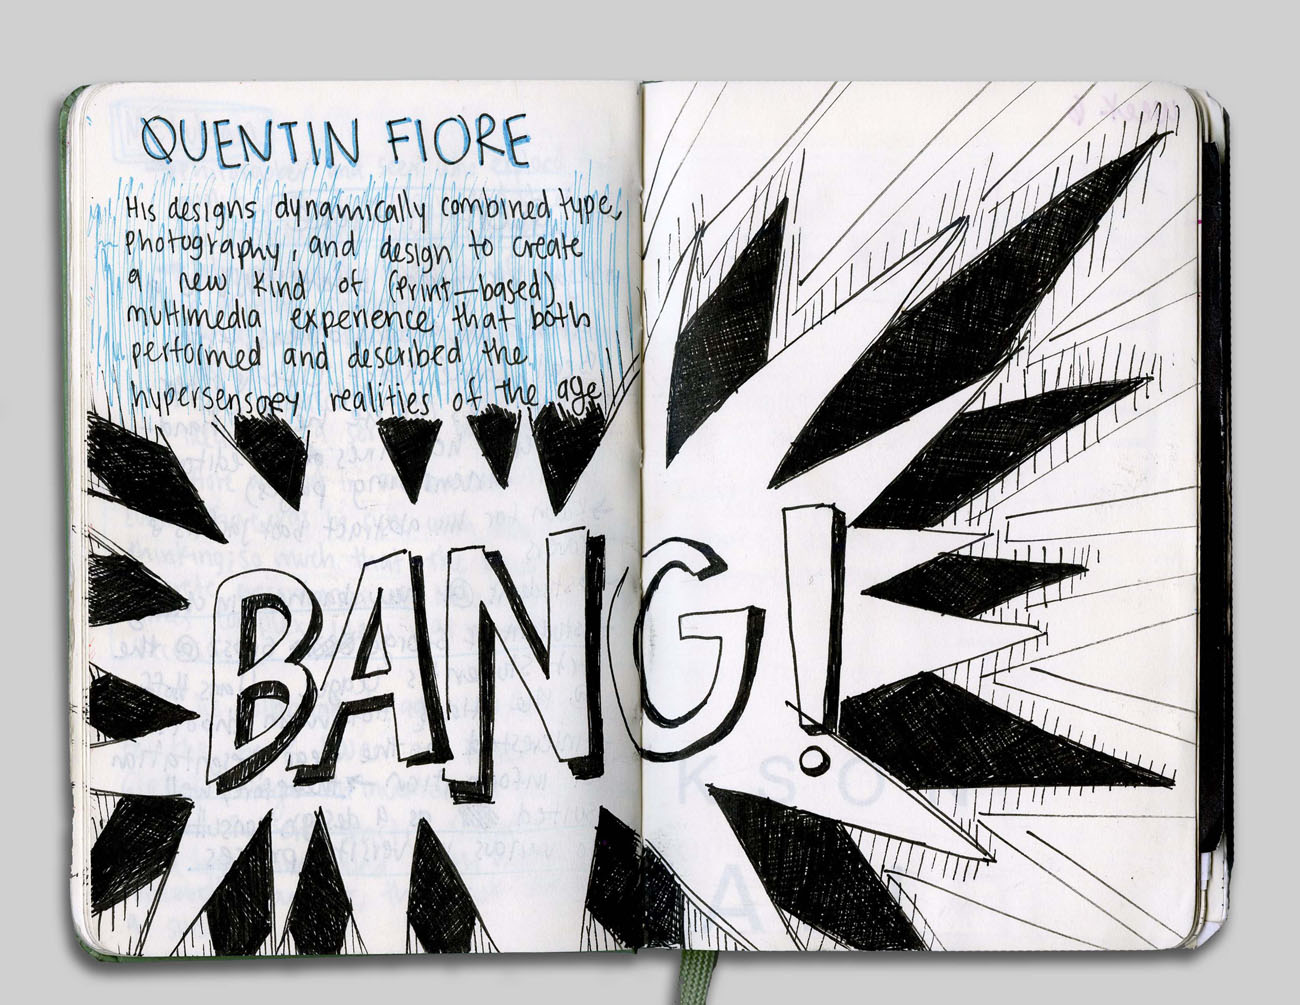 QUENTIN FIORE
His designs dynamically combined type,
photography, and design to create
a new kind of (print-based)
multimedia experience that both
performed and described the
hypersensory realities of the age
BANG!